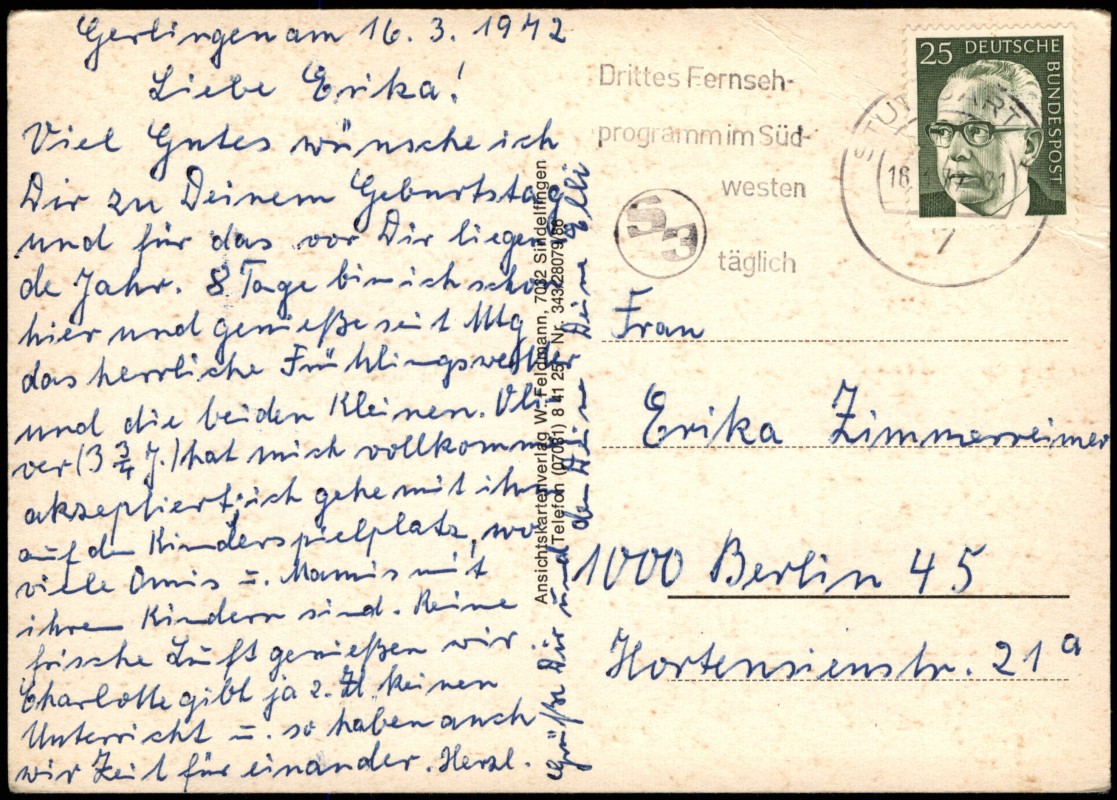 Gerlingen am 16. 3. 1972
Liebe Erika!
Viel Gutes wünsche ich
Dir zu Deinem Geburtstag
und für das vor Dir liegen
de Jahr. 8 Tage bin ich schon
hier und genieße seit Mtg
das herrliche Frühlingswetter
und die beiden Kleinen. Oli
ver (3 3/4 J.) hat mich vollkommen
akzeptiert; ich gehe mit ihm
auf den Kinderspielplatz, wo
viele Omis u. Mamis mit
ihren Kindern sind. Reine
frische Luft genießen wir.
Charlotte gibt ja z. Zt. keinen
Unterricht u. so haben auch
wir Zeit für einander. Herzl.
Grüße Dir und den Deinen Deine Elli
Ansichtskartenverlag W. Feldmann, 7032 Sindelfingen
Telefon (07031) 8 41 25 Nr. 343/28079/86
Drittes Fernseh-
programm im Süd-
westen
S3
täglich
STUTTGART
16.
7
25 DEUTSCHE
BUNDESPOST
Frau
Erika Zimmerreimer
1000 Berlin 45
Hortensienstr. 21a